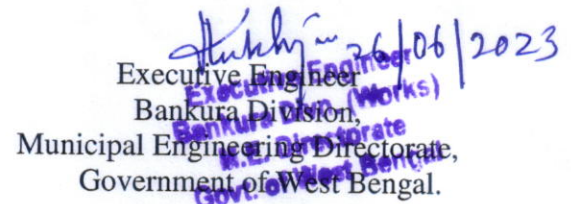 26/06/2023
Executive Engineer
Bankura Division,
Municipal Engineering Directorate,
Government of West Bengal.
Executive Engineer
Bankura Divn. (Works)
M.E. Directorate
Govt. of West Bengal